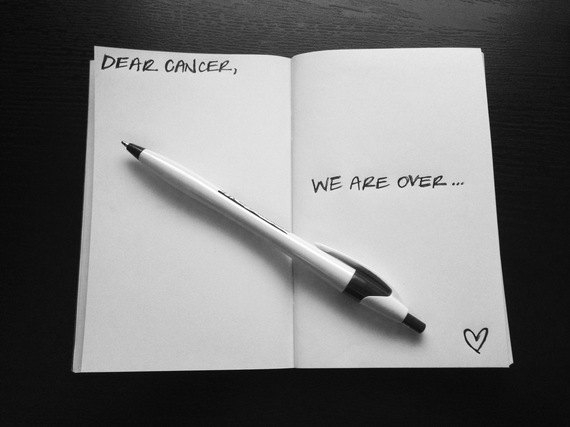 DEAR CANCER,
WE ARE OVER...